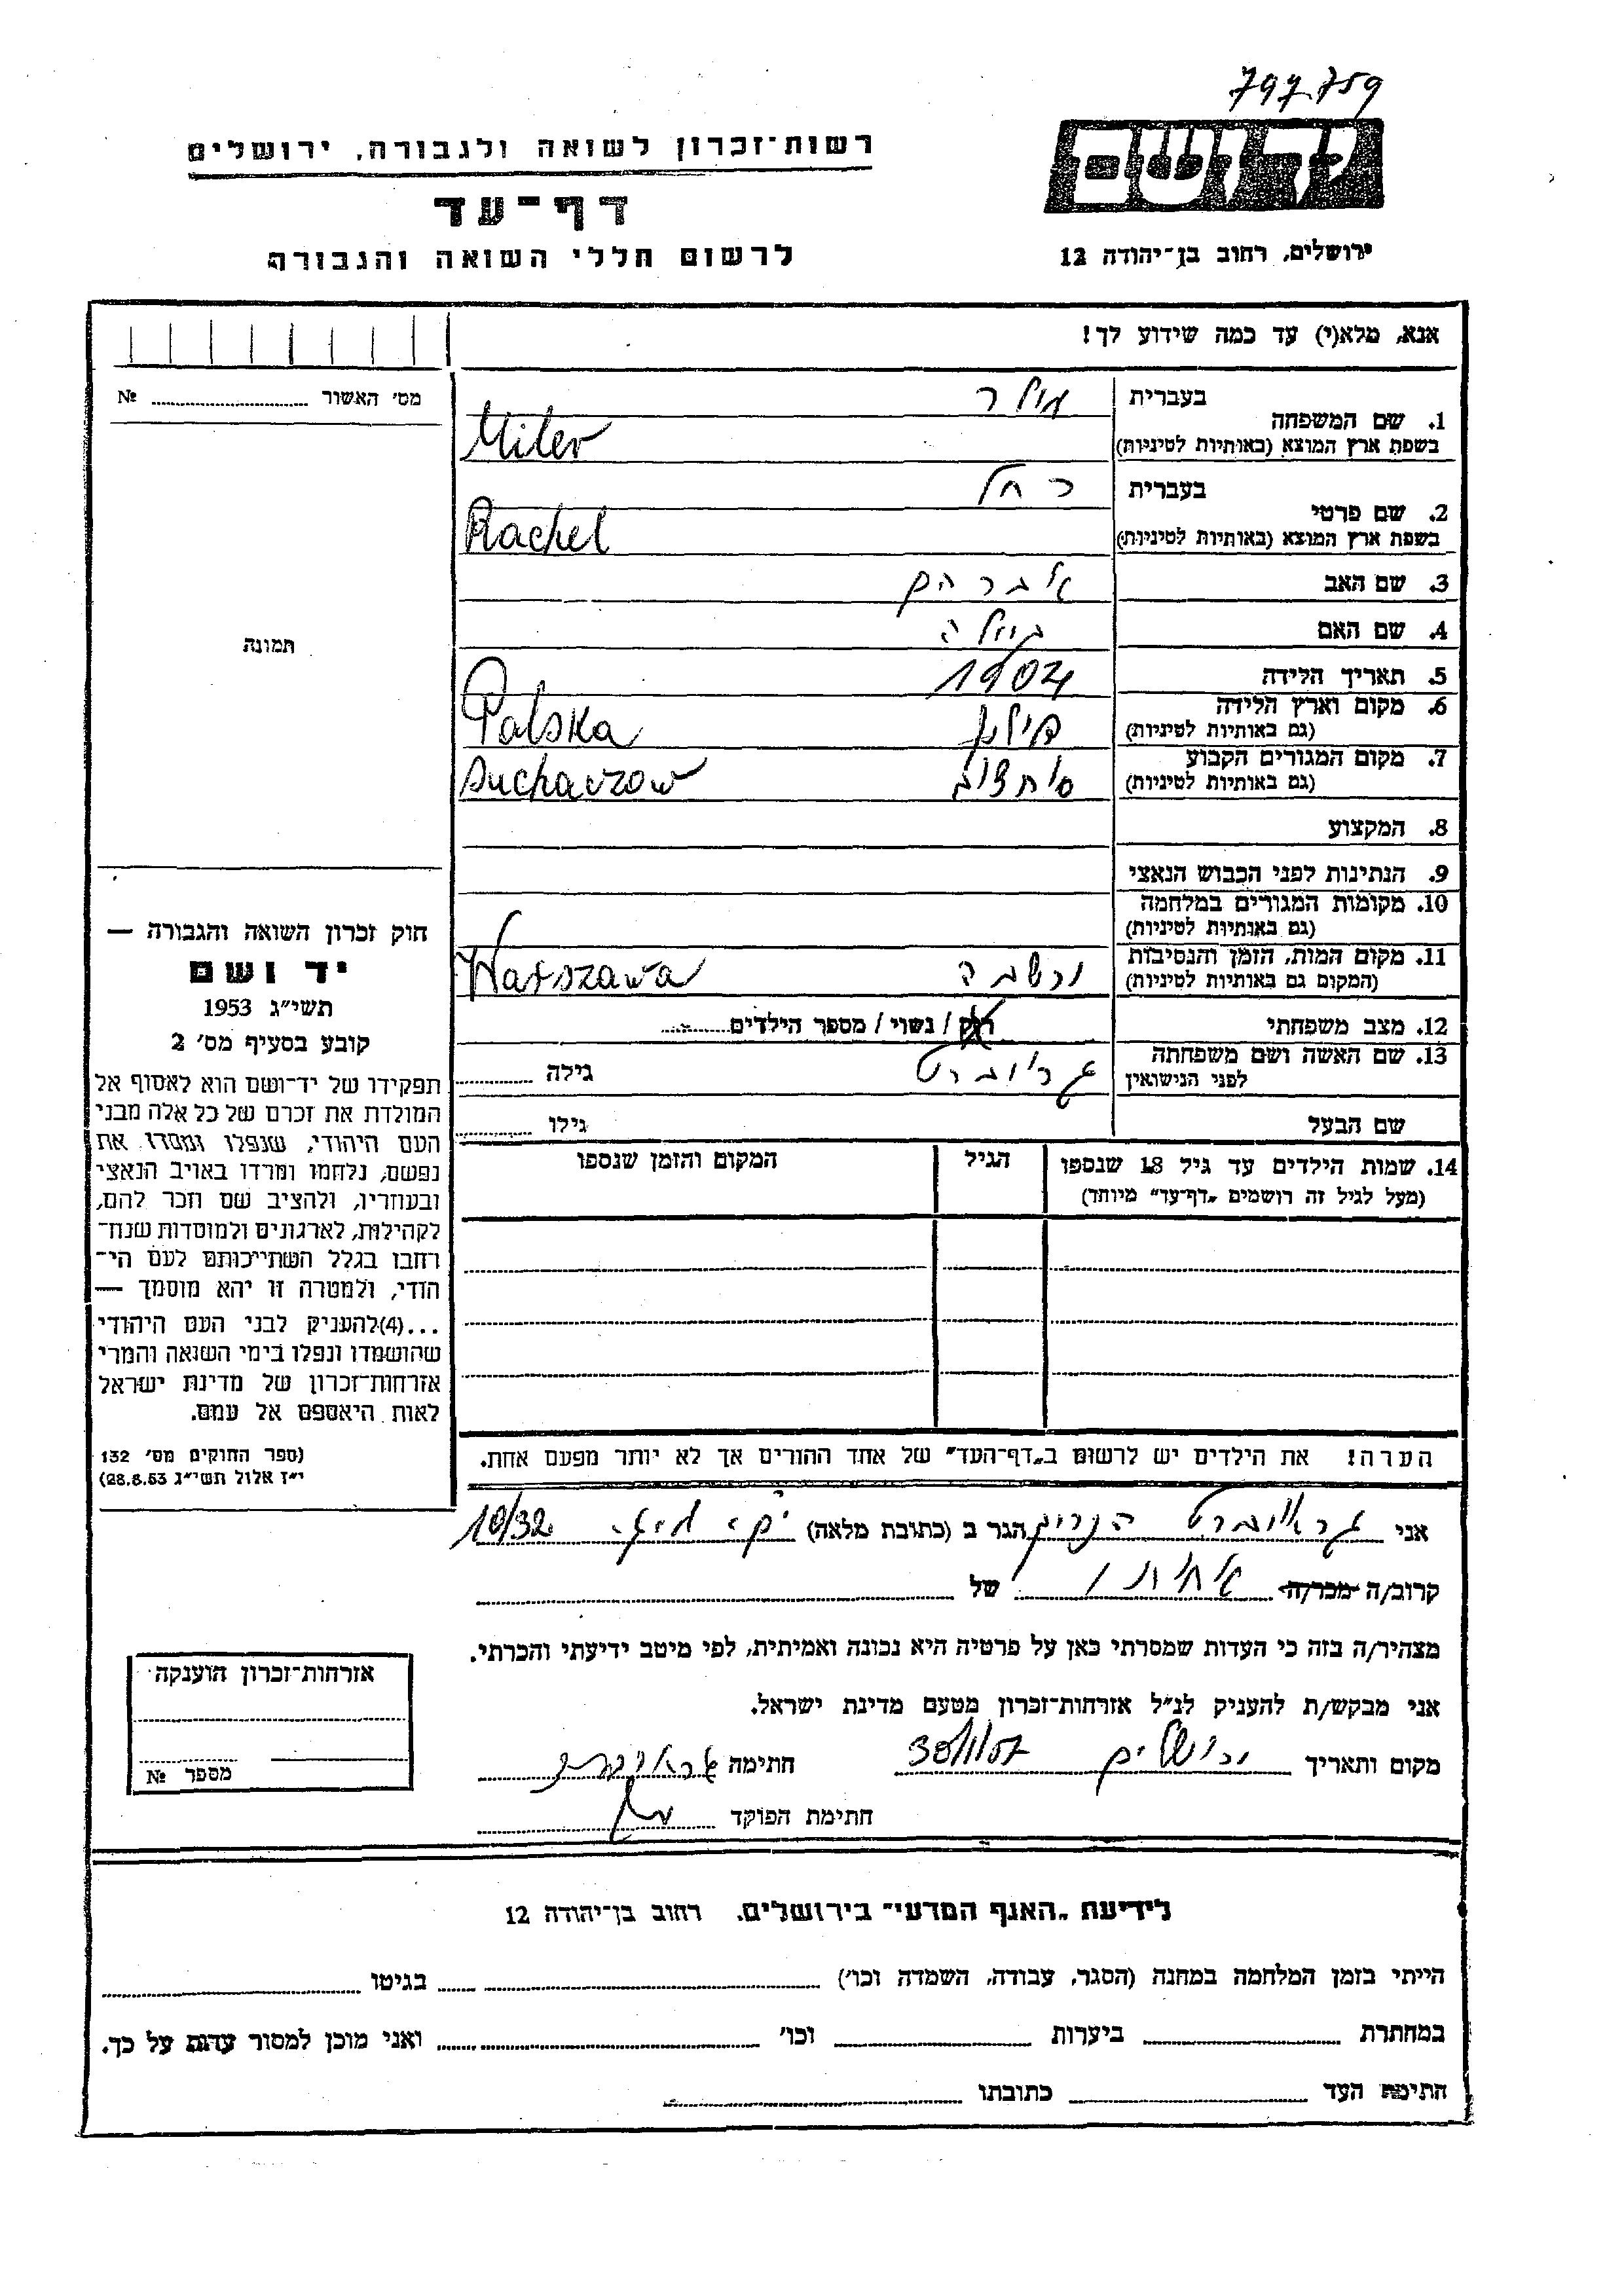 797759
יד ושם
רשות-זכרון לשואה ולגבורה, ירושלים
דף-עד
לרשום חללי השואה והגבורה
ירושלים, רחוב בן-יהודה 12
אנא, מלא(י) עד כמה שידוע לך!
מס׳ האשור ........ №
1. שם המשפחה בעברית מילר
בשפת ארץ המוצא (באותיות לטיניות) Miler
2. שם פרטי בעברית רחל
בשפת ארץ המוצא (באותיות לטיניות) Rachel
3. שם האב אברהם
4. שם האם
5. תאריך הלידה 1904
6. מקום וארץ הלידה
(גם באותיות לטיניות) פולין Polska
7. מקום המגורים הקבוע
(גם באותיות לטיניות) Suchaczow
8. המקצוע
9. הנתינות לפני הכבוש הנאצי
10. מקומות המגורים במלחמה
(גם באותיות לטיניות)
11. מקום המות, הזמן והנסיבות
(המקום גם באותיות לטיניות) ורשבה Warszawa
12. מצב משפחתי רווק / נשוי / מספר הילדים........
13. שם האשה ושם משפחתה
לפני הנישואין גריוברט גילה ........
שם הבעל גילו ........
14. שמות הילדים עד גיל 18 שנספו הגיל המקום והזמן שנספו
(מעל לגיל זה רושמים „דף-עד” מיוחד)
הערה! את הילדים יש לרשום ב„דף-העד” של אחד ההורים אך לא יותר מפעם אחת.
תמונה
חוק זכרון השואה והגבורה —
יד ושם
תשי״ג 1953
קובע בסעיף מס׳ 2
תפקידו של יד-ושם הוא לאסוף אל
המולדת את זכרם של כל אלה מבני
העם היהודי, שנפלו ומסרו את
נפשם, נלחמו ומרדו באויב הנאצי
ובעוזריו, ולהציב שם וזכר להם,
לקהילות, לארגונים ולמוסדות שנח-
רבו בגלל השתייכותם לעם הי-
הודי, ולמטרה זו יהא מוסמך —
...(4)להעניק לבני העם היהודי
שהושמדו ונפלו בימי השואה והמרי
אזרחות-זכרון של מדינת ישראל
לאות היאספם אל עמם.
(ספר החוקים מס׳ 132
י״ז אלול תשי״ג 28.8.53)
אני גראוברט הגר ב (כתובת מלאה) 10/32
קרוב/ה מכר/ה אחותו של
מצהיר/ה בזה כי העדות שמסרתי כאן על פרטיה היא נכונה ואמיתית, לפי מיטב ידיעתי והכרתי.
אני מבקש/ת להעניק לנ״ל אזרחות-זכרון מטעם מדינת ישראל.
מקום ותאריך ירושלים חתימה
חתימת הפוקד
אזרחות-זכרון הוענקה
מספר №
לידיעת „האגף המדעי” בירושלים. רחוב בן-יהודה 12
הייתי בזמן המלחמה במחנה (הסגר, עבודה, השמדה וכו׳) ........ בגיטו ........
במחתרת ........ ביערות ........ וכו׳ ........ ואני מוכן למסור עדות על כך.
חתימת העד ........ כתובתו ........